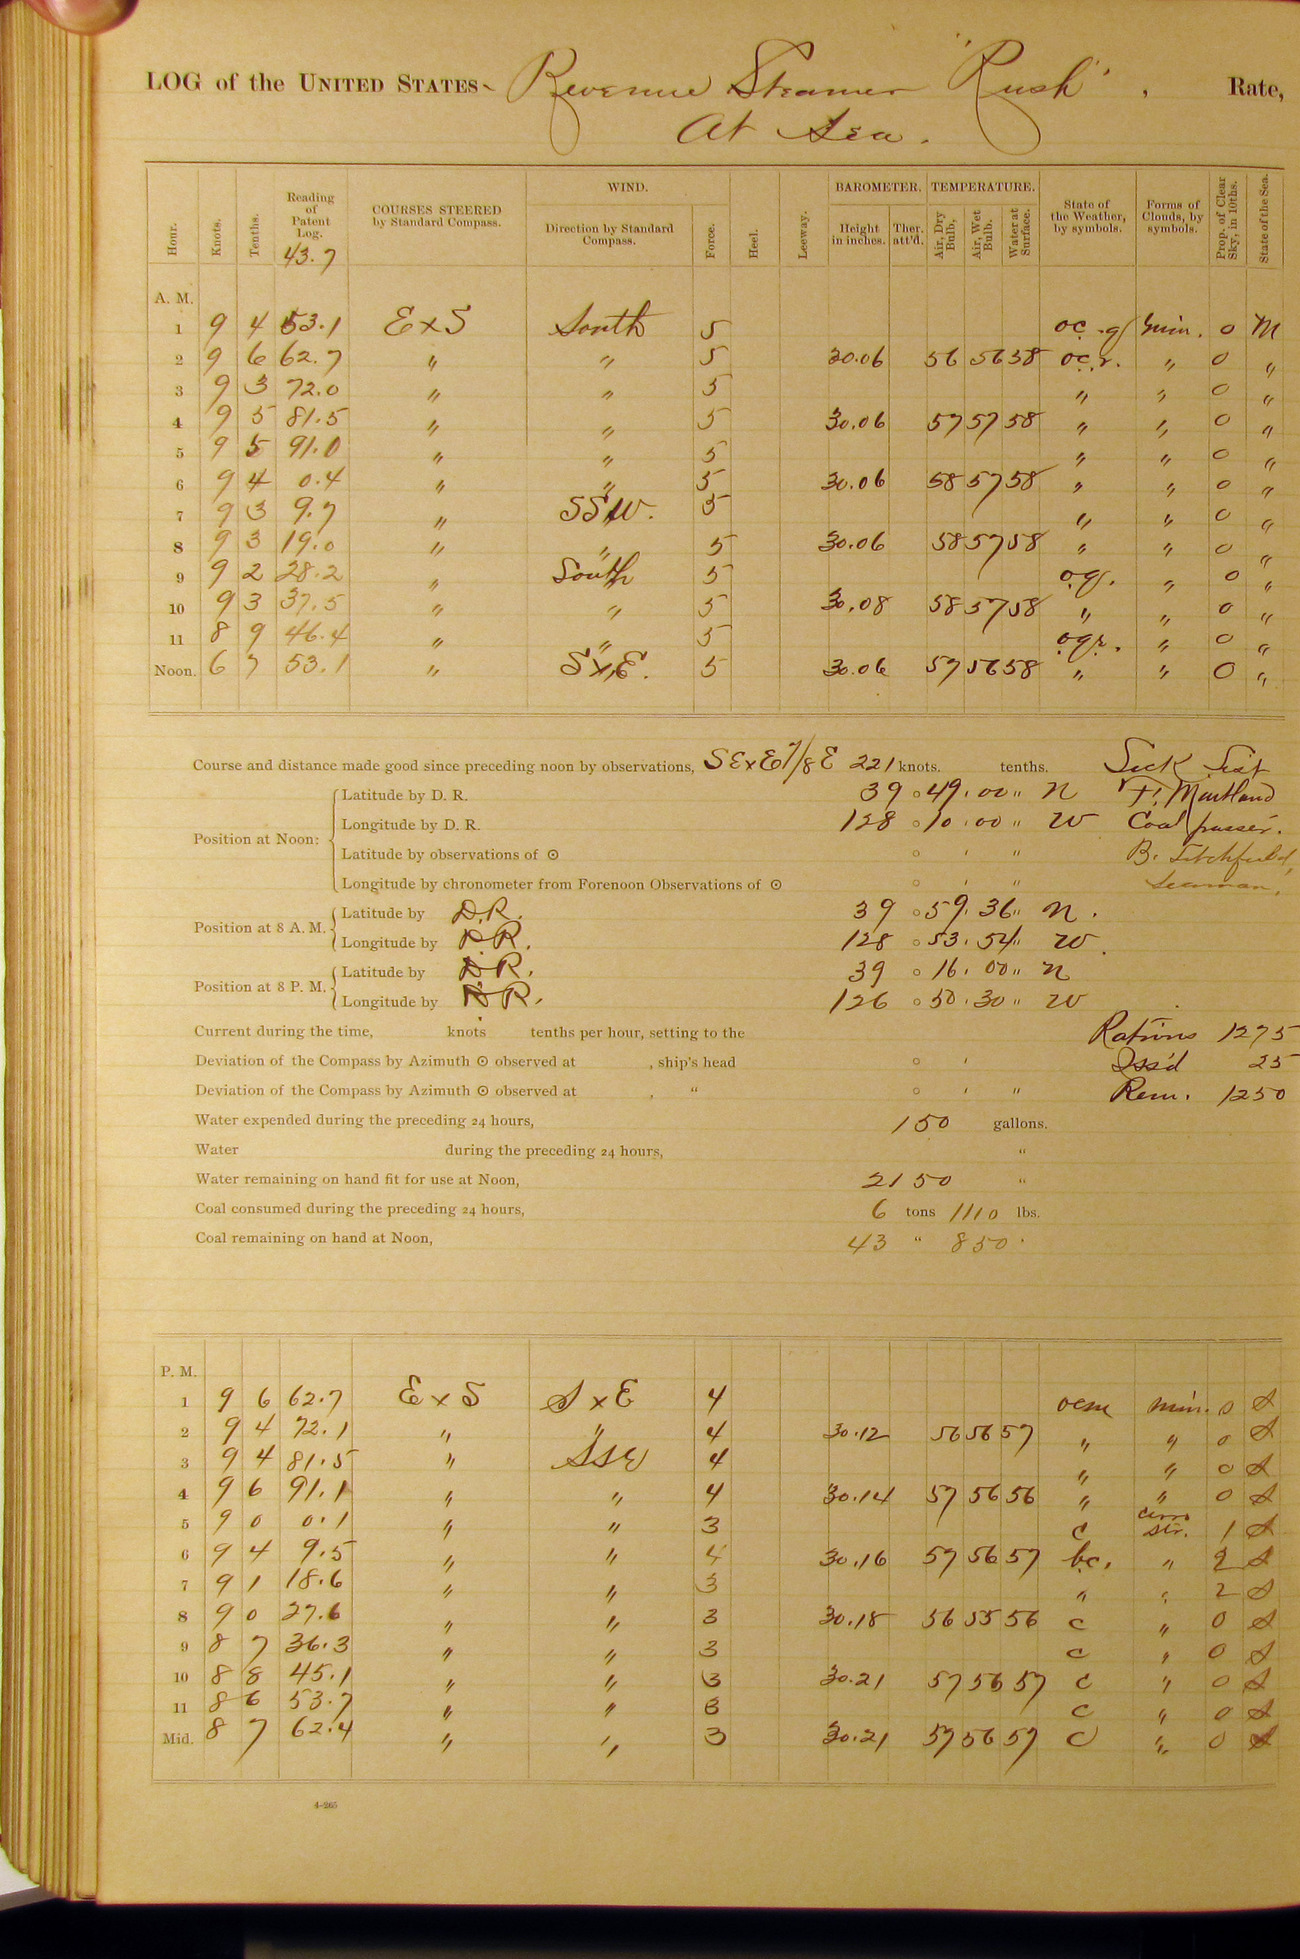 LOG of the UNITED STATES Revenue Steamer "Rush", Rate,
At Sea.
Hour. Knots. Tenths. Reading of Patent Log. 43.7 COURSES STEERED by Standard Compass. WIND. Direction by Standard Compass. Force. Heel. Leeway. BAROMETER. Height in inches. Ther. att'd. TEMPERATURE. Air, Dry Bulb. Air, Wet Bulb. Water at Surface. State of the Weather, by symbols. Forms of Clouds, by symbols. Prop. of Clear Sky, in 10ths. State of the Sea.
A. M.
1 9 4 53.1 E x S South 5 oc.g nim. 0 M
2 9 6 62.7 " " 5 30.06 56 56 58 oc.r. " 0 "
3 9 3 72.0 " " 5 " " 0 "
4 9 5 81.5 " " 5 30.06 57 57 58 " " 0 "
5 9 5 91.0 " " 5 " " 0 "
6 9 4 0.4 " " 5 30.06 58 57 58 " " 0 "
7 9 3 9.7 " SSW. 5 " " 0 "
8 9 3 19.0 " " 5 30.06 58 57 58 " " 0 "
9 9 2 28.2 " South 5 o.g. " 0 "
10 9 3 37.5 " " 5 30.08 58 57 58 " " 0 "
11 8 9 46.4 " " 5 o.g.r. " 0 "
Noon. 6 7 53.1 " S x E. 5 30.06 57 56 58 " " 0 "
Course and distance made good since preceding noon by observations, SExE 7/8 E 221 knots. tenths. Sick List
Position at Noon: Latitude by D. R. 39 ° 49 ' 00 " N F. Maitland
Longitude by D. R. 128 ° 10 ' 00 " W Coal passer.
Latitude by observations of ☉ ° ' " B. Litchfield,
Longitude by chronometer from Forenoon Observations of ☉ ° ' " Seaman.
Position at 8 A. M. Latitude by D.R. 39 ° 59 ' 36 " N.
Longitude by D.R. 128 ° 53 ' 54 " W.
Position at 8 P. M. Latitude by D.R. 39 ° 16 ' 00 " N
Longitude by D.R. 126 ° 50 ' 30 " W
Current during the time, knots tenths per hour, setting to the Rations 1275
Deviation of the Compass by Azimuth ☉ observed at , ship's head ° ' Iss'd 25
Deviation of the Compass by Azimuth ☉ observed at , " ° ' " Rem. 1250
Water expended during the preceding 24 hours, 150 gallons.
Water during the preceding 24 hours, "
Water remaining on hand fit for use at Noon, 2150 "
Coal consumed during the preceding 24 hours, 6 tons 1110 lbs.
Coal remaining on hand at Noon, 43 " 850 "
P. M.
1 9 6 62.7 E x S S x E 4 ocm nim. 0 S
2 9 4 72.1 " " 4 30.12 56 56 57 " " 0 S
3 9 4 81.5 " SSW 4 " " 0 S
4 9 6 91.1 " " 4 30.14 57 56 56 " " 0 S
5 9 0 0.1 " " 3 c cirro str. 1 S
6 9 4 9.5 " " 4 30.16 57 56 57 b.c. " 2 S
7 9 1 18.6 " " 3 " " 2 S
8 9 0 27.6 " " 3 30.18 56 55 56 c " 0 S
9 8 7 36.3 " " 3 c " 0 S
10 8 8 45.1 " " 3 30.21 57 56 57 c " 0 S
11 8 6 53.7 " " 3 c " 0 S
Mid. 8 7 62.4 " " 3 30.21 57 56 57 c " 0 S
4-265